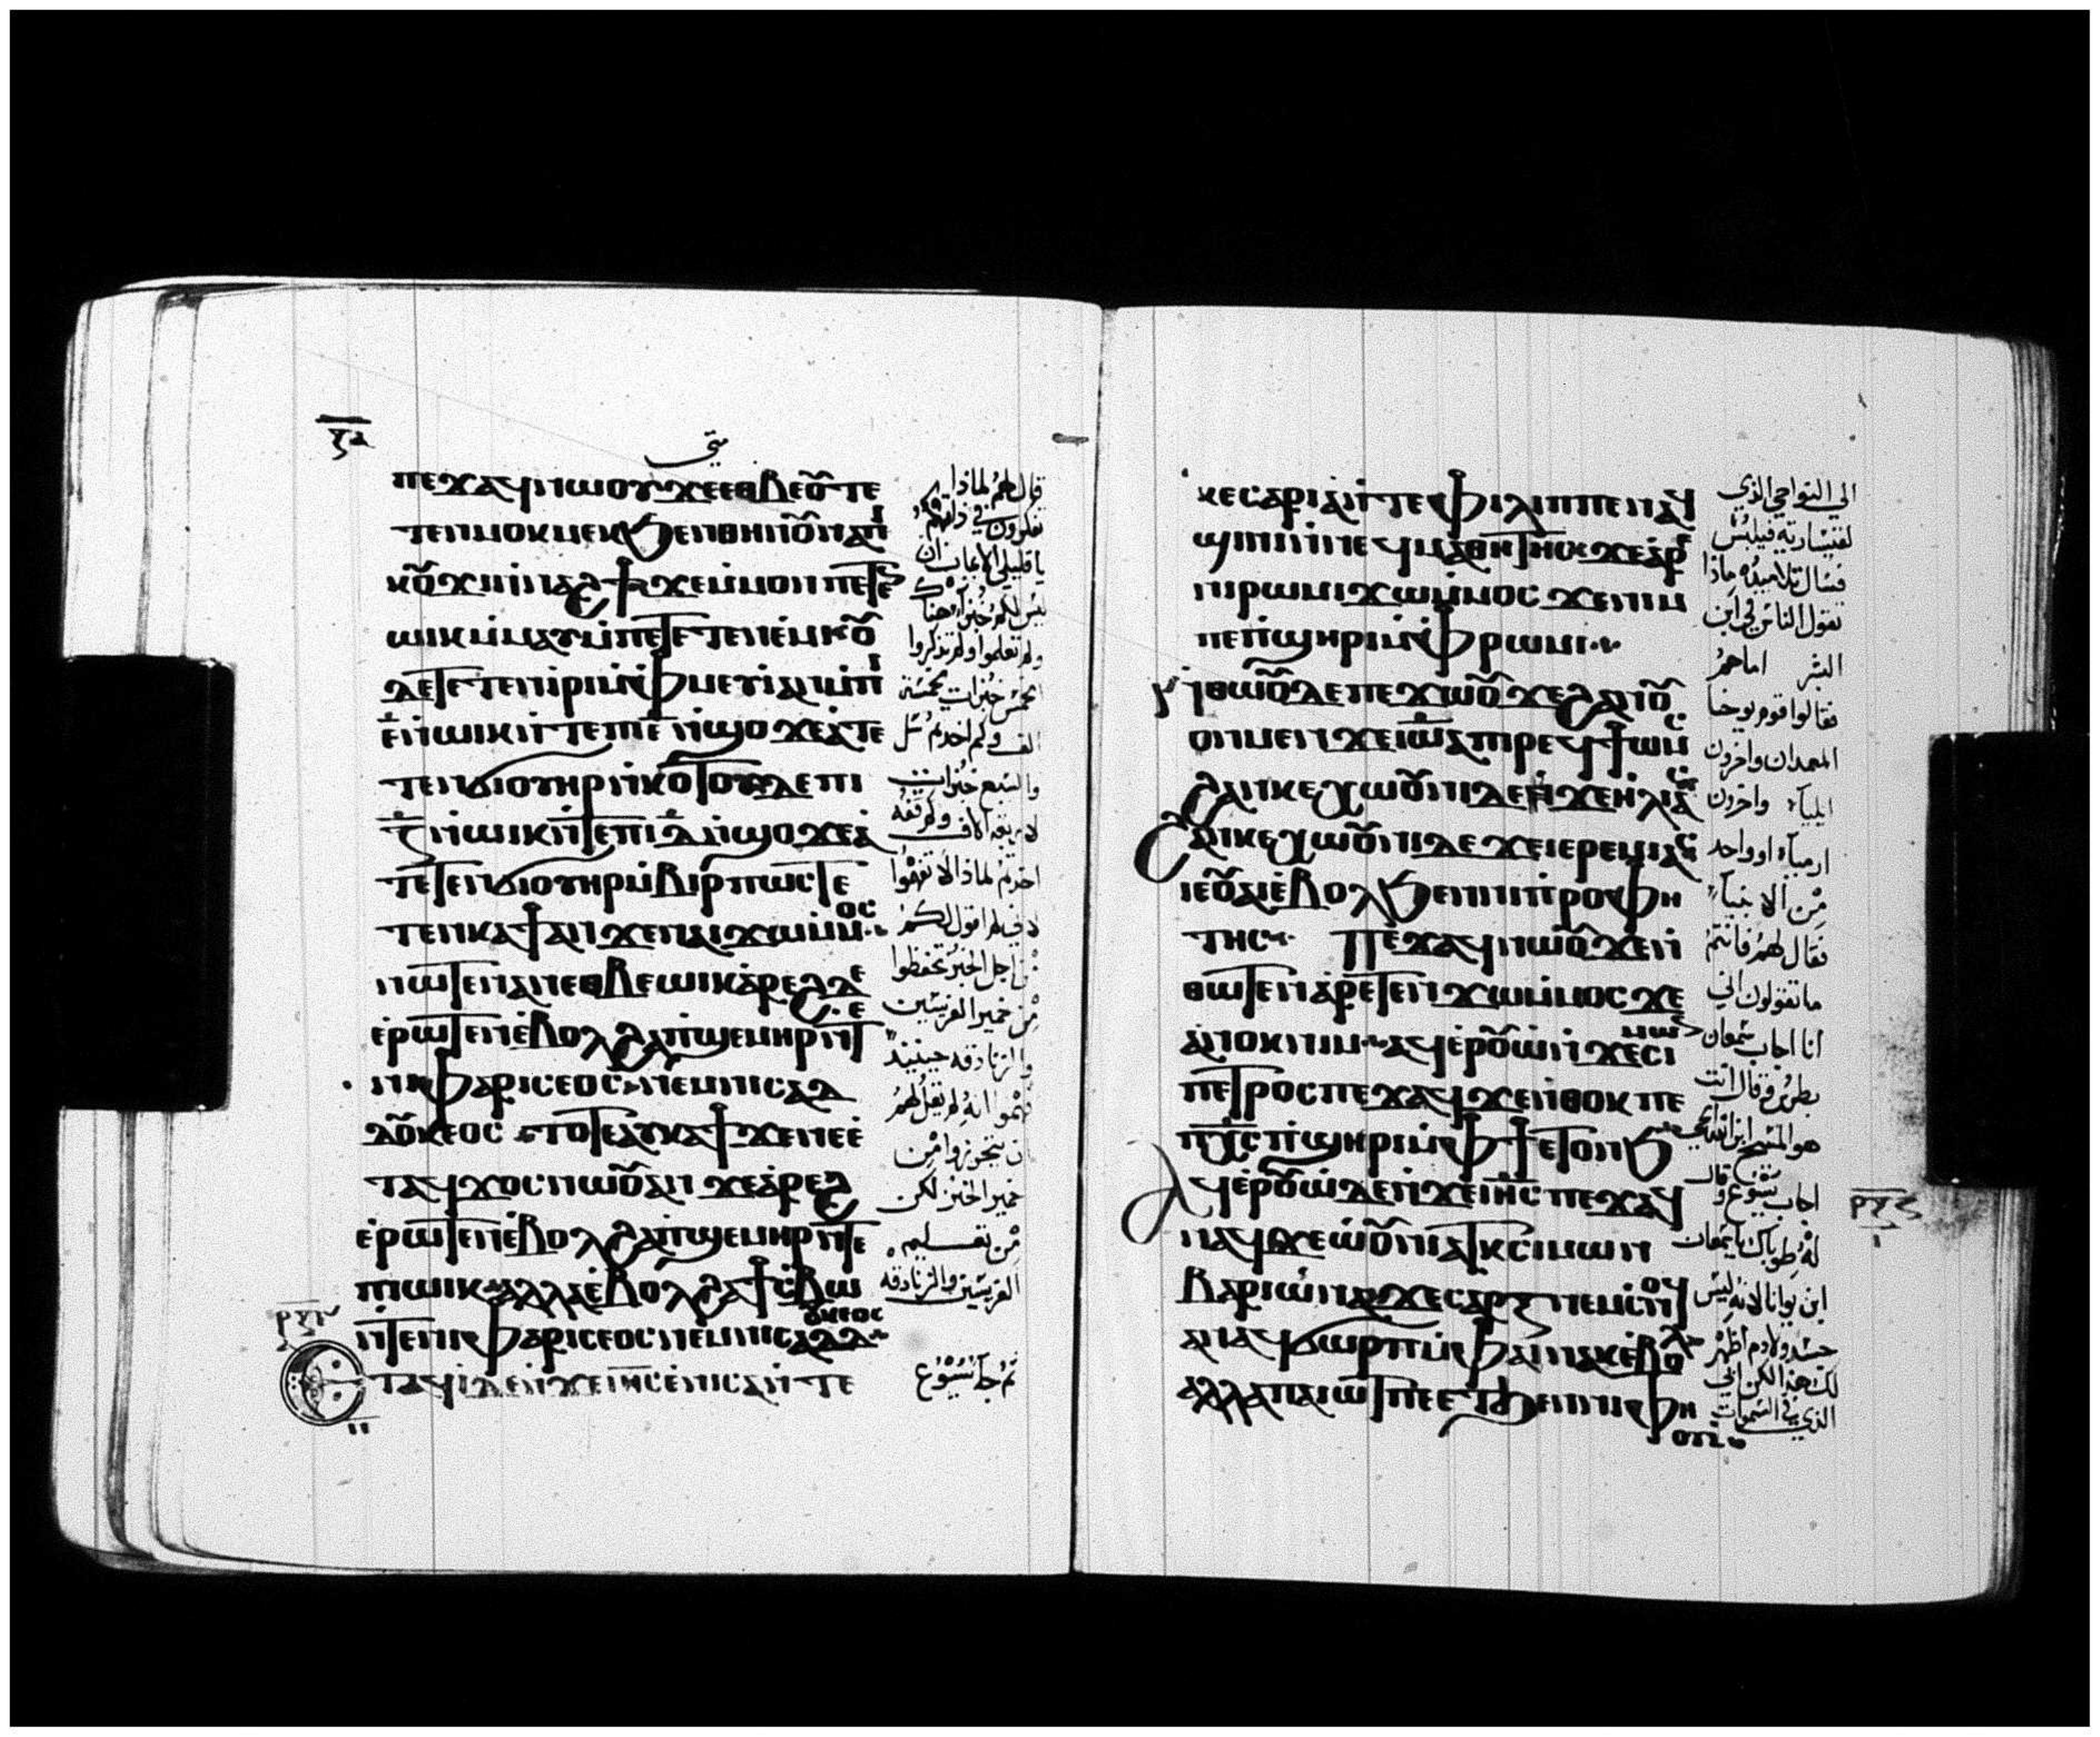 ⲝⲇ
متى
ⲡⲉϫⲁϥⲛⲱⲟⲩϫⲉⲉⲑⲃⲉⲟⲩⲧⲉ
ⲧⲉⲛⲙⲟⲕⲙⲉⲕϧⲉⲛⲑⲏⲛⲟⲩⲛⲁⲡⲓ
ⲕⲟⲩϫⲓⲛⲛⲁϩϯϫⲉⲙⲙⲟⲛⲡⲉⲧⲉ
ⲱⲓⲕⲙⲙⲁⲩⲙⲡⲉⲧⲉⲧⲉⲛⲉⲙⲕⲟⲩ
ⲇⲉⲧⲉⲧⲉⲛⲓⲣⲓⲙⲫⲙⲉⲩⲓⲁⲛⲙⲡⲓ
ⲉⲛⲱⲓⲕⲛⲧⲉⲡⲓⲉⲛϣⲟϫⲉⲁⲧⲉ
ⲧⲉⲛϭⲓⲟⲩⲏⲣⲛⲕⲟⲧⲟⲩⲇⲉⲡⲓ
ⲍⲛⲱⲓⲕⲛⲧⲉⲡⲓⲇⲛϣⲟϫⲉⲁ
ⲧⲉⲧⲉⲛϭⲓⲟⲩⲏⲣⲙⲃⲓⲣⲡⲱⲥⲧⲉ
ⲧⲉⲛⲕⲁϯⲁⲛϫⲉⲛⲁⲓϫⲱⲙⲙⲟⲥ
ⲛⲱⲧⲉⲛⲁⲛⲉⲑⲃⲉⲱⲓⲕⲁⲣⲉϩⲇⲉ
ⲉⲣⲱⲧⲉⲛⲉⲃⲟⲗϩⲁⲡϣⲉⲙⲏⲣⲛⲧⲉ
ⲛⲓⲫⲁⲣⲓⲥⲉⲟⲥⲛⲉⲙⲛⲓⲥⲁⲇ
ⲇⲟⲩⲕⲉⲟⲥⲧⲟⲧⲉⲁⲩⲕⲁϯϫⲉⲛⲉⲉ
ⲧⲁϥϫⲟⲥⲛⲱⲟⲩⲁⲛϫⲉⲁⲣⲉϩ
ⲉⲣⲱⲧⲉⲛⲉⲃⲟⲗϩⲁⲡϣⲉⲙⲏⲣⲛⲧⲉ
ⲡⲓⲱⲓⲕⲁⲗⲗⲁⲉⲃⲟⲗϩⲁϯⲥⲃⲱ
ⲛⲧⲉⲛⲓⲫⲁⲣⲓⲥⲉⲟⲥⲛⲉⲙⲛⲓⲥⲁⲇⲇⲟⲩⲕⲉⲟⲥ
ⲉⲧⲁϥⲓⲇⲉⲛϫⲉⲓⲏⲥⲉⲛⲓⲥⲁⲛⲧⲉ
قال لهم لماذا
تفكرون في ذاتكم
يا قليلي الايمان ان
ليس لكم خبز اهنا
ولم تعلموا ولم تذكروا
الخمس خبزات لخمسة
الف وكم اخدتم سل
والسبع خبزات
لاربعة الاف وكم قفه
اخدتم لماذا لا تفهموا
من اجل الخبز تحفظوا
من خمير الفريسيين
والزنادقه حينيذ
فهموا انه لم يقل لهم
ان يتحرزوا من
خمير الخبز لكن
من تعليم
الفريسيين والزنادقه
ثم جا يسوع
ⲕⲉⲥⲁⲣⲓⲁⲛⲧⲉⲫⲓⲗⲓⲡⲡⲉⲛⲁϥ
ϣⲓⲛⲓⲛⲛⲉϥⲙⲁⲑⲏⲧⲏⲥϫⲉⲁⲣⲉ
ⲛⲓⲣⲱⲙⲓϫⲱⲙⲙⲟⲥϫⲉⲛⲓⲙ
ⲡⲉⲡϣⲏⲣⲓⲙⲫⲣⲱⲙⲓ
ⲛⲑⲱⲟⲩⲇⲉⲡⲉϫⲱⲟⲩϫⲉϩⲁⲛⲟⲩ
ⲟⲛⲙⲉⲛϫⲉⲓⲱⲁⲡⲓⲣⲉϥϯⲱⲙⲥ
ϩⲁⲛⲕⲉⲭⲱⲟⲩⲛⲓⲇⲉϫⲉⲏⲗⲓⲁⲥ
ϩⲁⲛⲕⲉⲭⲱⲟⲩⲛⲓⲇⲉϫⲉⲓⲉⲣⲉⲙⲓⲁⲥ
ⲓⲉⲟⲩⲁⲓⲉⲃⲟⲗϧⲉⲛⲛⲓⲡⲣⲟⲫⲏ
ⲧⲏⲥ ⲡⲉϫⲁϥⲛⲱⲟⲩϫⲉⲛ
ⲑⲱⲧⲉⲛⲁⲣⲉⲧⲉⲛϫⲱⲙⲙⲟⲥϫⲉ
ⲁⲛⲟⲕⲛⲓⲙⲁϥⲉⲣⲟⲩⲱⲛϫⲉⲥⲓⲙⲱⲛ
ⲡⲉⲧⲣⲟⲥⲡⲉϫⲁϥϫⲉⲛⲑⲟⲕⲡⲉ
ⲡⲭⲥⲡϣⲏⲣⲓⲙⲫϯⲉⲧⲟⲛϧ
ⲁϥⲉⲣⲟⲩⲱⲇⲉⲛϫⲉⲓⲏⲥⲡⲉϫⲁϥ
ⲛⲁϥϫⲉⲱⲟⲩⲛⲓⲁⲧⲕⲥⲓⲙⲱⲛ
ⲃⲁⲣⲓⲱⲛⲁϫⲉⲥⲁⲣⲝⲛⲉⲙⲥⲛⲟϥ
ⲁⲛⲁϥϭⲱⲣⲡⲙⲫⲁⲓⲛⲁⲕⲉⲃⲟⲗ
ⲁⲗⲗⲁⲡⲁⲓⲱⲧⲡⲉⲉⲧϧⲉⲛⲛⲓⲫⲏ
ⲟⲩⲓ
الى النواحي الذي
لقيسارية فيلبس
فسال تلاميذه ماذا
تقول الناس في ابن
البشر اماهم
فقالوا قوم يوحنا
المعمدان واخرون
ايلياء واخرون
ارمياء او واحد
من الانبياء
فقال لهم فانتم
ما تقولون اني
انا اجاب شمعان
بطرس فقال انت
هو المسيح ابن الله الحي
اجاب يسوع وقال
له طوباك يا شمعان
ابن يونا لانه ليس
جسد ولا دم اظهر
لك هذا لكن ابي
الذي في السموات